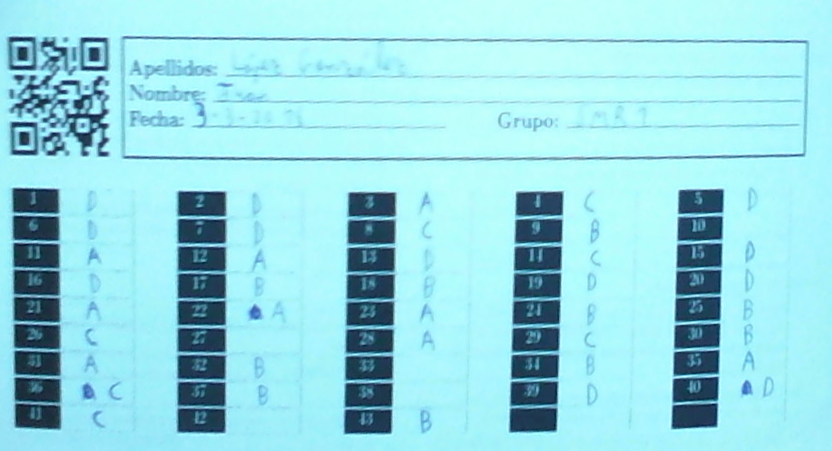 Apellidos: López González
Nombre: Ivan
Fecha: 3-3-20 Grupo: SMR1
1 D 2 D 3 A 4 C 5 D
6 D 7 D 8 C 9 B 10
11 A 12 A 13 D 14 C 15 D
16 D 17 B 18 B 19 D 20 D
21 A 22 A 23 A 24 B 25 B
26 C 27 28 A 29 C 30 B
31 A 32 B 33 34 B 35 A
36 C 37 B 38 39 D 40 D
41 C 42 43 B